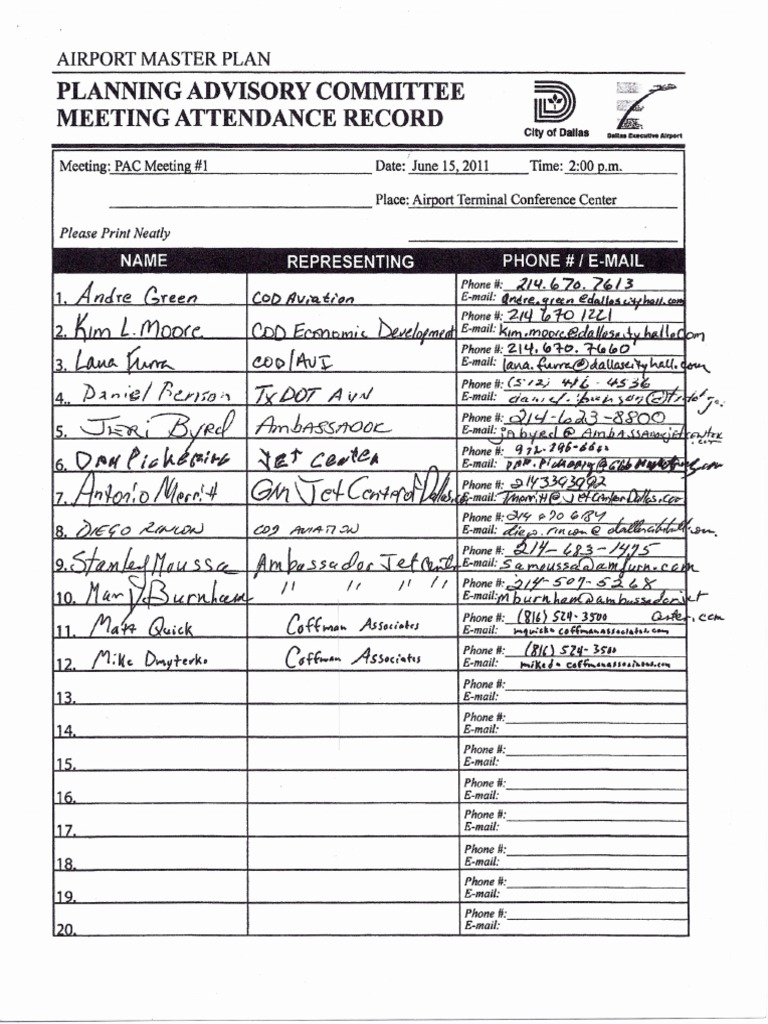 AIRPORT MASTER PLAN
PLANNING ADVISORY COMMITTEE
MEETING ATTENDANCE RECORD
City of Dallas
Dallas Executive Airport
Meeting: PAC Meeting #1 Date: June 15, 2011 Time: 2:00 p.m.
Place: Airport Terminal Conference Center
Please Print Neatly
NAME REPRESENTING PHONE # / E-MAIL
Phone #: 214.670.7613
1. Andre Green COD Aviation E-mail: andre.green@dallascityhall.com
Phone #: 214 670 1221
2. Kim L. Moore COD Economic Development E-mail: kim.moore@dallascityhall.com
Phone #: 214.670.7660
3. Lana Furra COD/AVI E-mail: lana.furra@dallascityhall.com
Phone #: (512) 416-4536
4.. Daniel Benson TxDOT AVN E-mail:
Phone #: 214-623-8800
5. Jeri Byrd E-mail: jabyrd@
Phone #:
6. Dan Pickering Jet Center E-mail:
Phone #: 2143393992
7. Antonio Merritt GM Jet Center of Dallas E-mail: Tmerritt@JetCenterDallas.com
Phone #: 214 670 6184
8. DIEGO RINCON COD AVIATION E-mail:
Phone #: 214-683-1475
9. Stanley Moussa Ambassador Jet Center E-mail: samoussa@amfurn.com
Phone #: 214-507-5268
10. Mary Burnham " " " " E-mail: mburnham@ambassadorjet
center.com
Phone #: (816) 524-3500
11. Matt Quick Coffman Associates E-mail: mquick@coffmanassociates.com
Phone #: (816) 524-3500
12. Mike Dmyterko Coffman Associates E-mail: miked@coffmanassociates.com
Phone #:
13. E-mail:
Phone #:
14. E-mail:
Phone #:
15. E-mail:
Phone #:
16. E-mail:
Phone #:
17. E-mail:
Phone #:
18. E-mail:
Phone #:
19. E-mail:
Phone #:
20. E-mail: